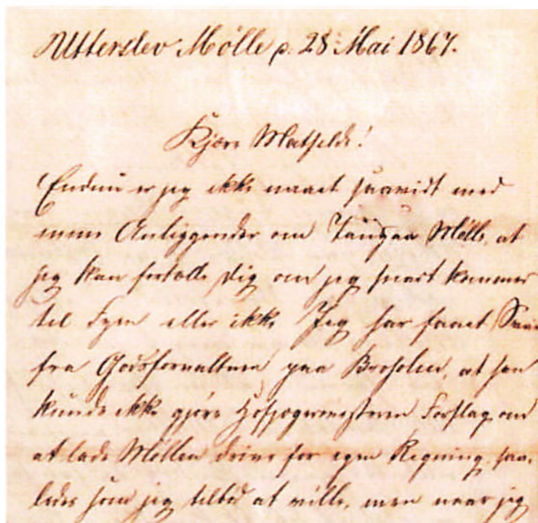 Utterslev Mølle p. 28 Mai 1867.
Kjære Mathilde!
Endnu er jeg ikke naaet saavidt med
mine Anliggender om Tangaa Mølle, at
jeg kan fortælle dig om jeg snart kommer
til Fyen eller ikke. Jeg har faaet Svar
fra Godsforvalteren paa Broholm, at han
kunde ikke gjøre Hofjægermesteren Forslag om
at lade Møllen drive for egen Regning, saa-
ledes som jeg tilbød at ville, men naar jeg